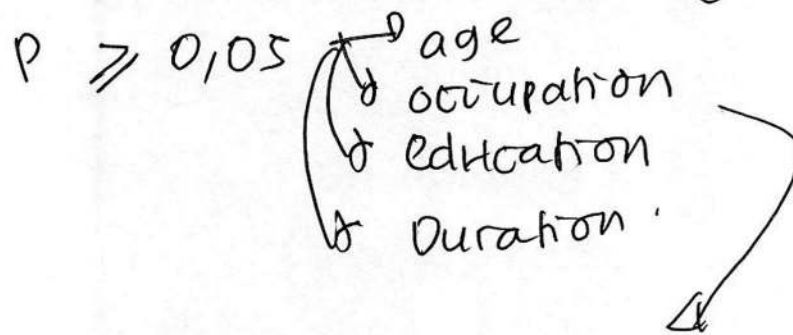 P ⩾ 0,05 age
occupation
education
Duration.